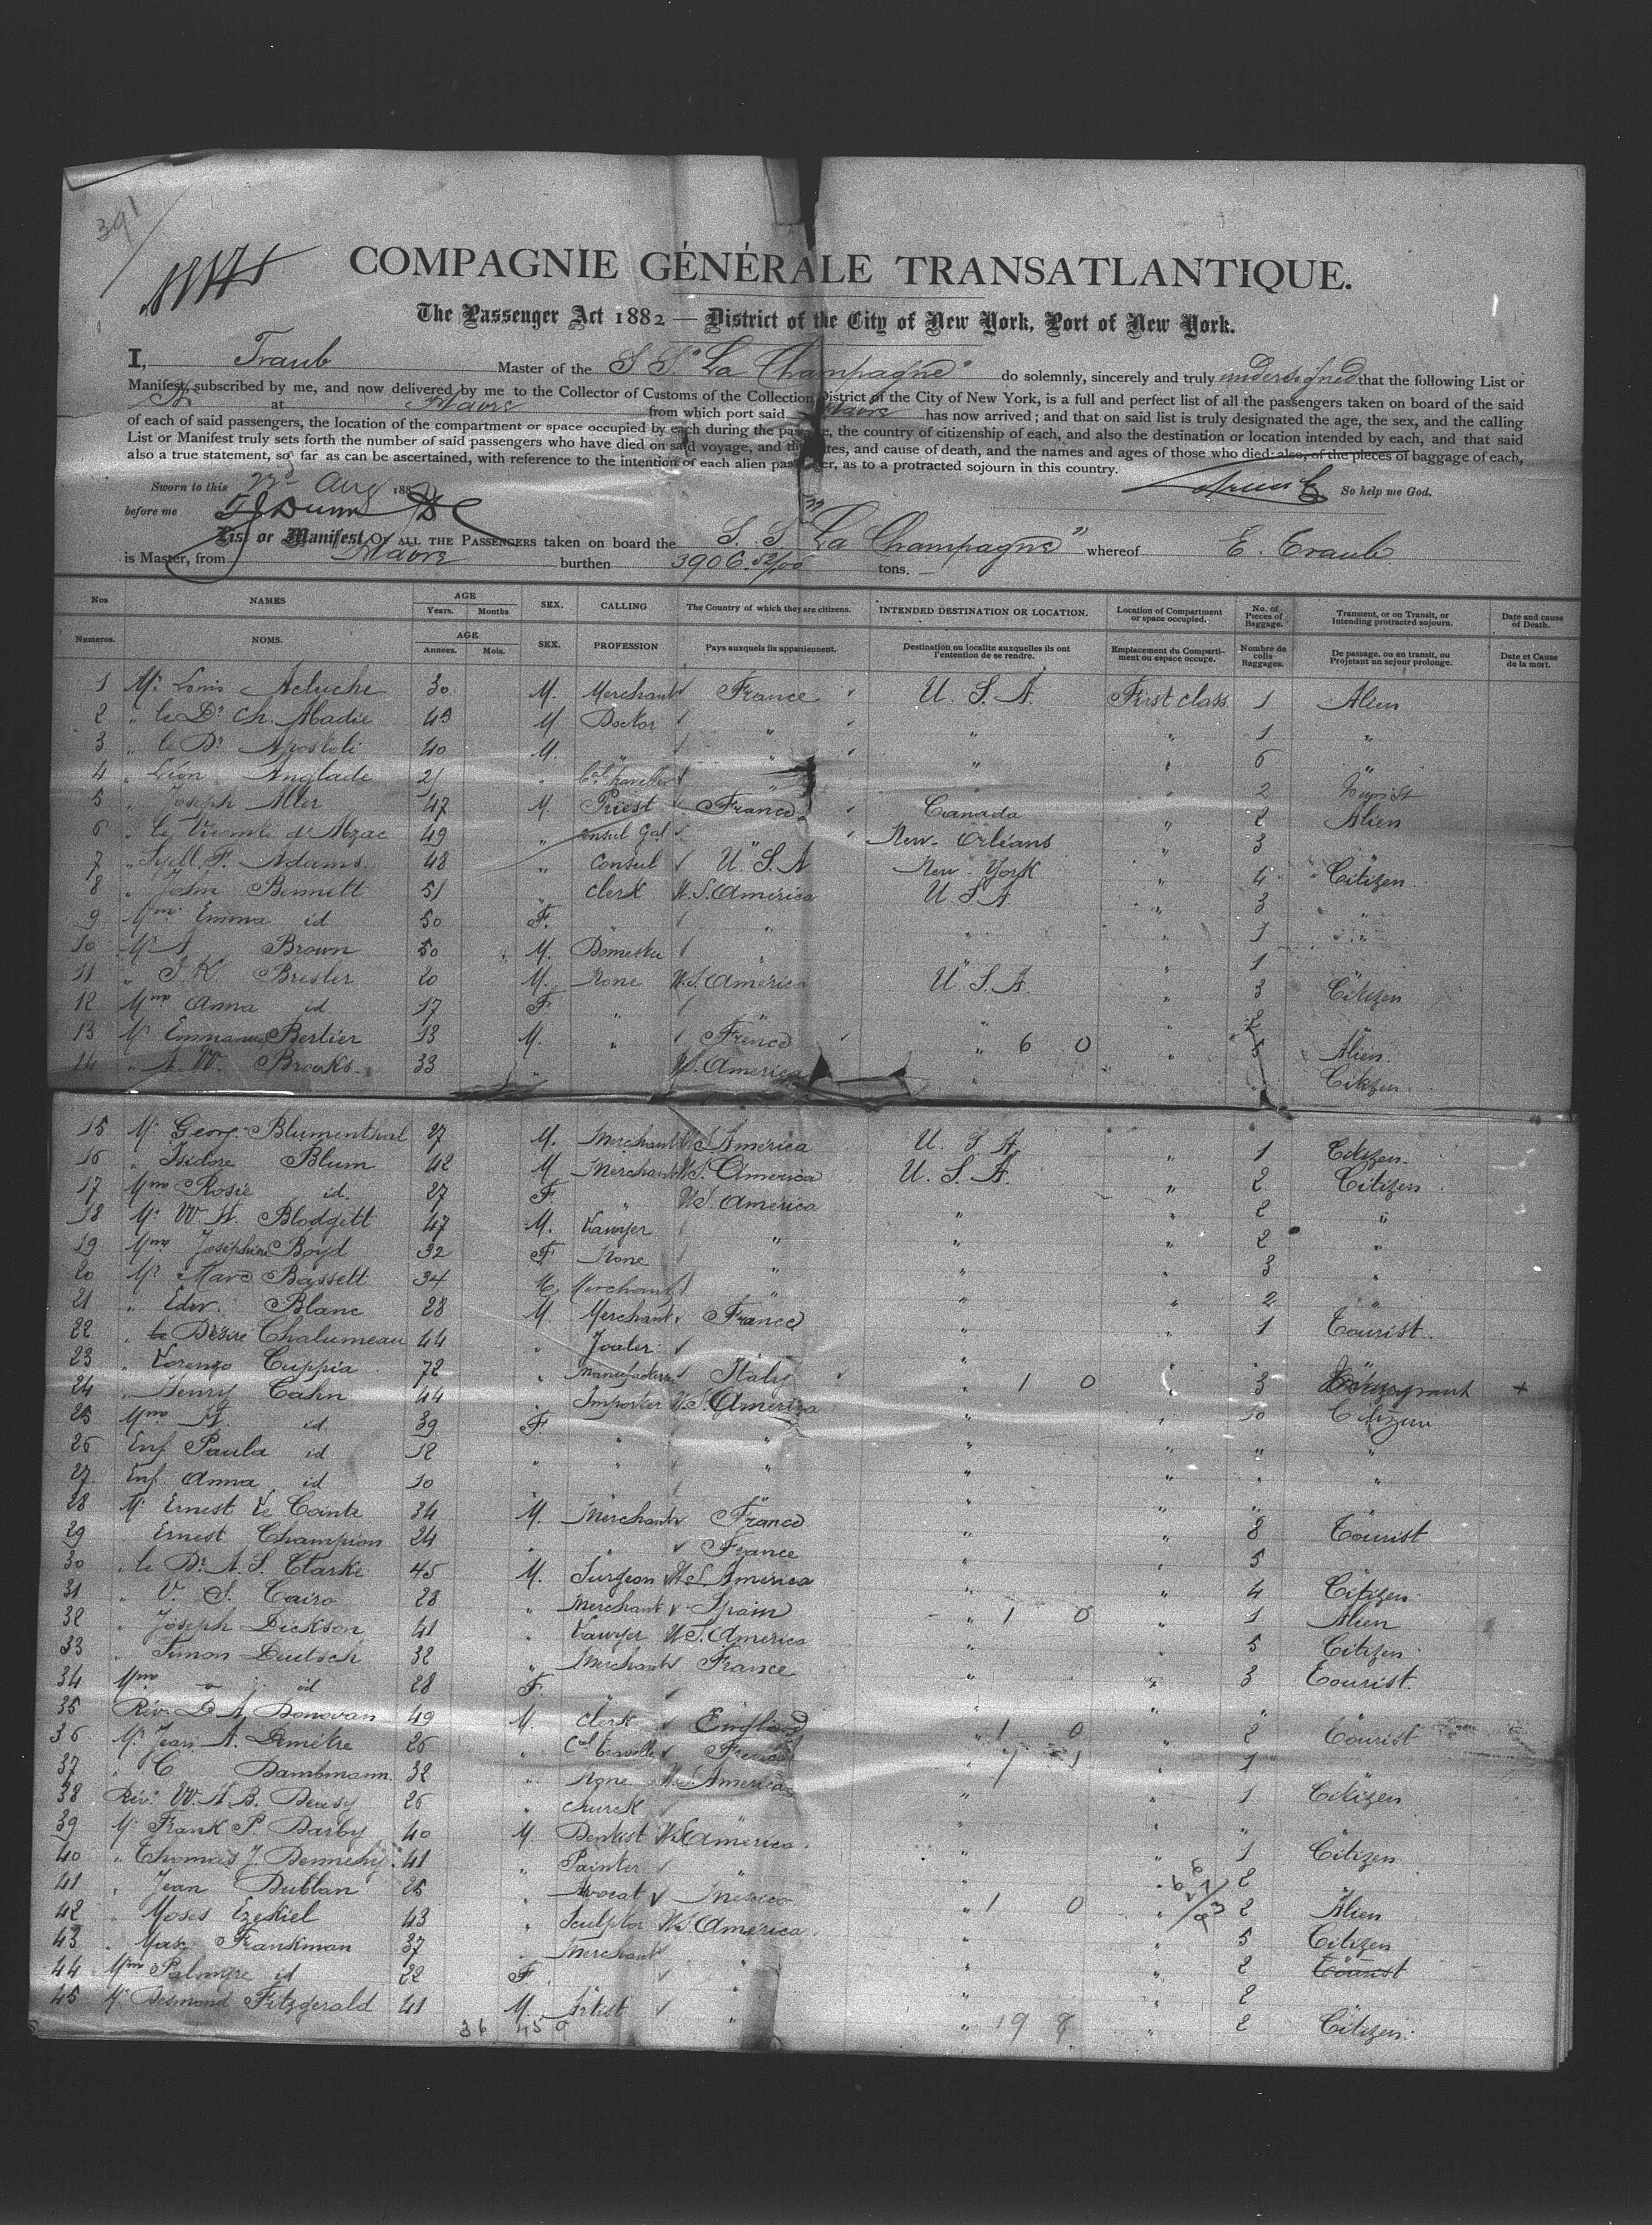 391
COMPAGNIE GÉNÉRALE TRANSATLANTIQUE.
The Passenger Act 1882 — District of the City of New York, Port of New York.
I, Traub Master of the S.S. "La Champagne" do solemnly, sincerely and truly undersigned that the following List or
Manifest, subscribed by me, and now delivered by me to the Collector of Customs of the Collection District of the City of New York, is a full and perfect list of all the passengers taken on board of the said
at Havre from which port said Havre has now arrived; and that on said list is truly designated the age, the sex, and the calling
of each of said passengers, the location of the compartment or space occupied by each during the passage, the country of citizenship of each, and also the destination or location intended by each, and that said
List or Manifest truly sets forth the number of said passengers who have died on said voyage, and the dates, and cause of death, and the names and ages of those who died; also, of the pieces of baggage of each,
also a true statement, so far as can be ascertained, with reference to the intention of each alien passenger, as to a protracted sojourn in this country.
Sworn to this 22d Aug 188 So help me God.
before me T J Dunn
List or Manifest OF ALL THE PASSENGERS taken on board the S. S. "La Champagne" whereof E. Traub
is Master, from Havre burthen 3906.52/100 tons.
Nos NAMES AGE Years. Months SEX. CALLING The Country of which they are citizens. INTENDED DESTINATION OR LOCATION. Location of Compartment or space occupied. No. of Pieces of Baggage. Transient, or on Transit, or Intending protracted sojourn. Date and cause of Death.
Numeros. NOMS. AGE Annees. Mois. SEX. PROFESSION Pays auxquels ils appartiennent. Destination ou localite auxquelles ils ont l'entention de se rendre. Emplacement du Compartiment ou espace occupe. Nombre de colis Baggages. De passage, ou en transit, ou Projetant un sejour prolonge. Date et Cause de la mort.
1 Mr Louis Acluche 30 M. Merchant France U. S. A. First class 1 Alien
2 " le Dr Ch. Abadie 45 M Doctor " " " 1 "
3 " le Dr Apostoli 40 M. " " " " 6 "
4 " Léon Anglade 21 " " " 2 Tourist
5 " Joseph Aller 47 M. Priest France Canada " 2 Alien
6 " le Vicomte d'Abzac 49 " Consul Gal " New-Orléans " 3 "
7 " Lyell T. Adams 48 " Consul U. S. A New-York " 4 Citizen
8 " John Bennett 51 " Clerk U.S. America U. S. A " 3 "
9 Mme Emma id 50 F. " " " " 1 "
10 Mr A. Brown 50 M. Domestic " " " 1
11 " J. K. Bresler 20 M. None U.S. America U. S. A. " 3 Citizen
12 Mme Anna id 17 F. " " " " 2
13 Mr Emmanuel Berlier 13 M. " France " 6 0 " 5 Alien
14 " A. W. Brooks 33 " U.S. America " " Citizen
15 Mr Georg. Blumenthal 27 M. Merchant U.S America U. S. A. " 1 Citizen
16 " Isidore Blum 42 M Merchant U.S. America U. S. A. " 2 Citizen
17 Mme Rosie id. 27 F. " U.S. America " " 2 "
18 Mr W. H. Blodgett 47 M. Lawyer " " " 2 "
19 Mme Josephine Boyd 32 F. None " " " 3 "
20 Mr Marc Bassett 34 M. Merchant " " " 2 "
21 " Edw. Blanc 28 M. Merchant France " " 1 Tourist
22 " Désiré Chalumeau 44 " " " "
23 " Lorenzo Cuppia 72 " Manufacturer Italy " 1 0 " 3 +
24 " Henry Cahn 44 " Importer U.S. America " " 10 Citizen
25 Mme H. id 39 F. " " " " " "
26 Enf Paula id 12 " " " " " " "
27 Enf Anna id 10 " "
28 Mr Ernest Le Cointe 34 M. Merchant France " " 8 Tourist
29 Ernest Champion 24 " " France " " 5 "
30 " le Dr A. S. Clarke 45 M. Surgeon U.S. America " " 4 Citizen
31 " V. S. Cairo 28 " Merchant Spain " 1 0 " 1 Alien
32 " Joseph Dickson 41 " Lawyer U.S. America " " 5 Citizen
33 " Simon Deutsch 32 " Merchant France " " 3 Tourist
34 Mme id 28 F. " " " "
35 Rév. D. A. Donovan 49 M. Clerk England " 1 0 " 2 Tourist
36 Mr Jean A. Demètre 26 " Cal traveller France " 1 1 " 1 "
37 " C Dambmann 32 " None U.S. America " " 1 Citizen
38 Rév. W. A. B. 26 " Church " " " "
39 Mr Frank P. Darby 40 M. Dentist U.S America " " 1 Citizen
40 " Thomas J. Dennehy 41 " Painter " " " 2
41 " Jean Dublan 25 " Avocat Mexico " 1 0 " 2 Alien
42 " Moses Ezekiel 43 " Sculptor U.S. America " " 5 Citizen
43 " Max Frankman 37 " Merchant " " " 2 Tourist
44 Mme Palmyre id 22 F. " " " 2
45 Mr Desmond Fitzgerald 41 M. Artist " " 19 8 " 2 Citizen
36 45 9